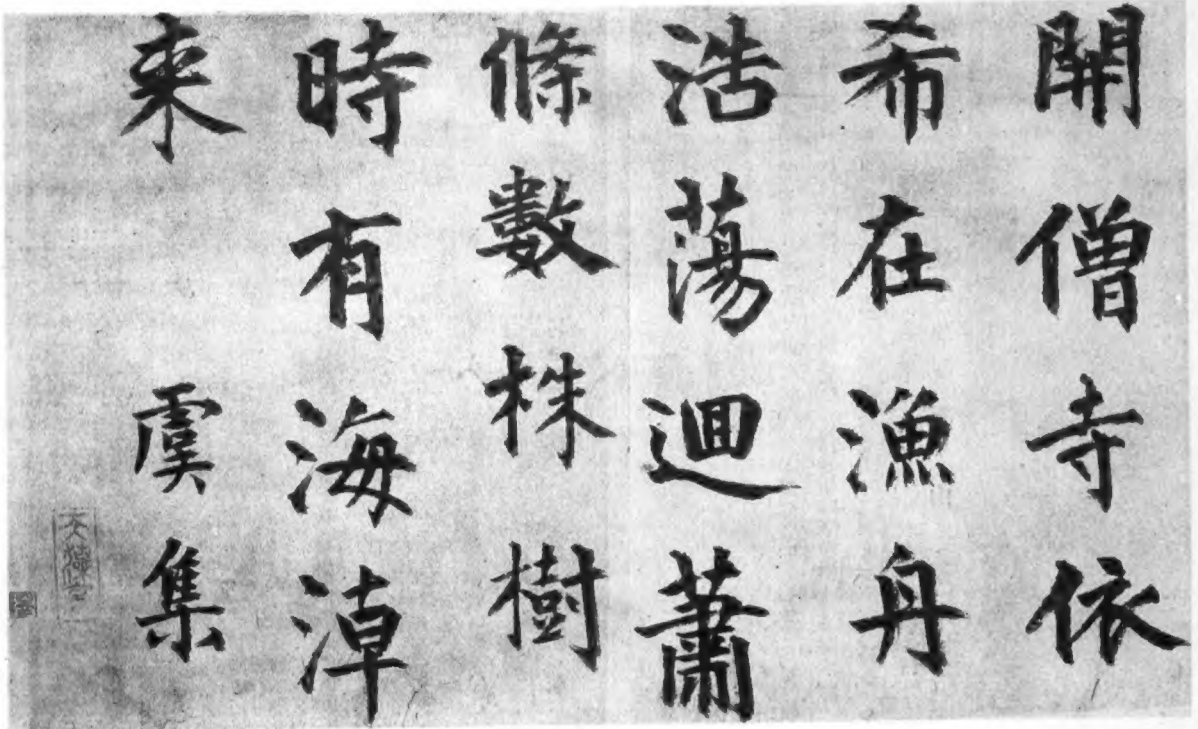 開僧寺依
希在漁舟
浩蕩迴蕭
條數株樹
時有海淖
來 虞集